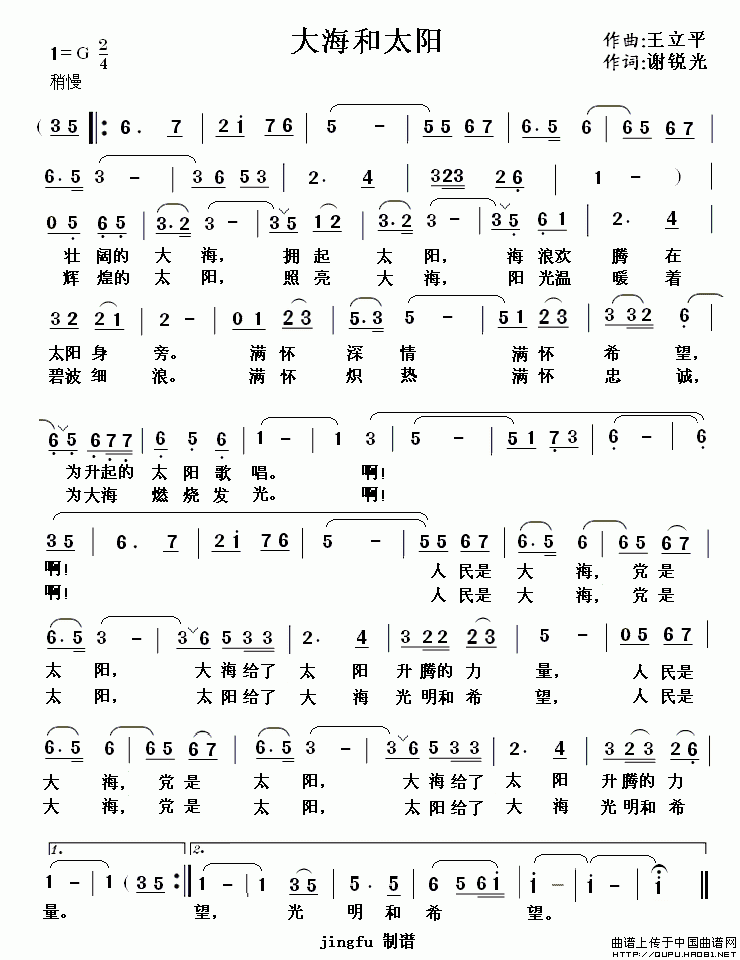 大海和太阳
1=G 2/4
作曲:王立平
稍慢
作词:谢锐光
( 3 5 ‖: 6. 7 | 2 i 7 6 | 5 - | 5 5 6 7 | 6. 5 6 | 6 5 6 7 |
6. 5 3 - | 3 6 5 3 | 2. 4 | 3 2 3 2 6 | 1 - ) |
0 5 6 5 | 3. 2 3 - | 3 5 1 2 | 3. 2 3 - | 3 5 6 1 | 2. 4 |
壮 阔的 大 海, 拥 起 太 阳, 海 浪欢 腾 在
辉 煌的 太 阳, 照 亮 大 海, 阳 光温 暖 着
3 2 2 1 | 2 - | 0 1 2 3 | 5. 3 5 - | 5 1 2 3 | 3 3 2 6 |
太阳 身 旁。 满 怀 深 情 满 怀 希 望,
碧波 细 浪。 满 怀 炽 热 满 怀 忠 诚,
6 5 6 7 7 | 6 5 6 | 1 - | 1 3 | 5 - | 5 1 7 3 | 6 - | 6
为升起的 太 阳 歌 唱。 啊!
为大海 燃 烧 发 光。 啊!
3 5 | 6. 7 | 2 i 7 6 | 5 - | 5 5 6 7 | 6. 5 6 | 6 5 6 7 |
啊! 人 民是 大 海, 党 是
啊! 人 民是 大 海, 党 是
6. 5 3 - | 3 6 5 3 3 | 2. 4 | 3 2 2 2 3 | 5 - | 0 5 6 7 |
太 阳, 大 海给了 太 阳 升 腾的 力 量, 人 民是
太 阳, 太 阳给了 大 海 光 明和 希 望, 人 民是
6. 5 6 | 6 5 6 7 | 6. 5 3 - | 3 6 5 3 3 | 2. 4 | 3 2 3 2 6 |
大 海, 党 是 太 阳, 大 海给了 太 阳 升 腾的 力
大 海, 党 是 太 阳, 太 阳给了 大 海 光 明和 希
1. 2.
1 - | 1 ( 3 5 :‖ 1 - | 1 3 5 | 5 4 | 6 5 6 i | i - | i - | i ‖
量。 望, 光 明 和 希 望。
jingfu 制谱
曲谱上传于中国曲谱网
HTTP://QUPU.HAO81.NET